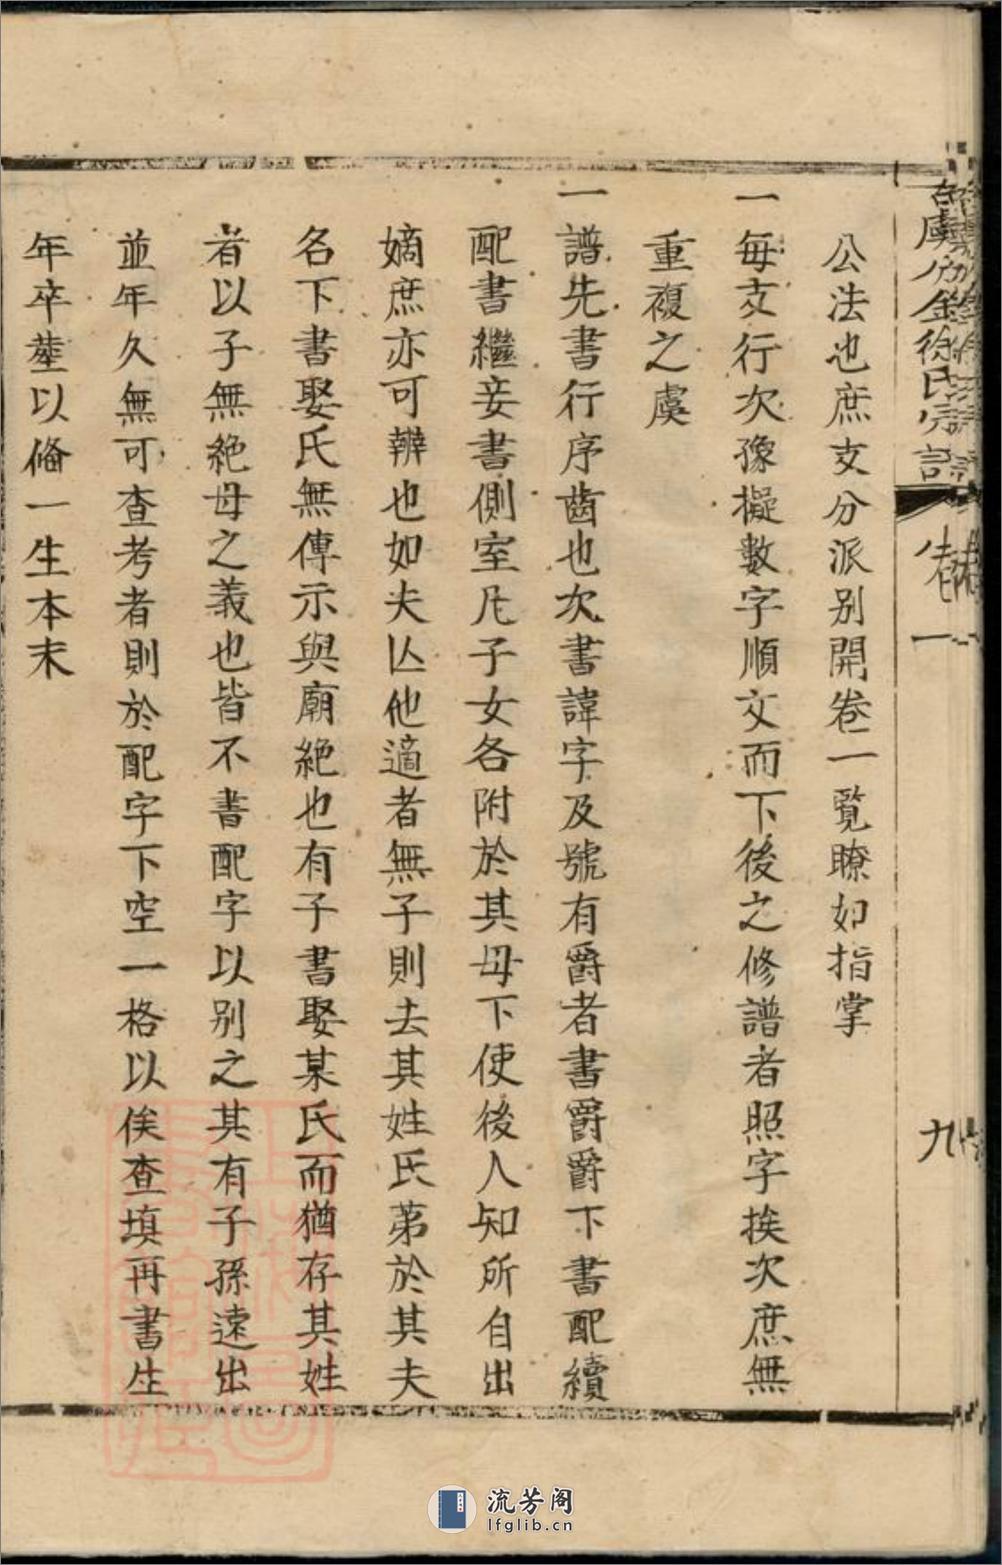 公法也庶支分派别開卷一覧瞭如指掌
一每支行次豫擬數字順文而下後之修譜者照字挨次庶無
重複之虞
一譜先書行序齒也次書諱字及號有爵者書爵爵下書配續
配書繼妾書側室凡子女各附於其母下使後人知所自出
嫡庶亦可辨也如夫亾他適者無子則去其姓氏苐於其夫
名下書娶氏無傳示與廟絶也有子書娶某氏而猶存其姓
者以子無絶母之義也皆不書配字以别之其有子孫遠出
並年久無可查考者則於配字下空一格以俟查填再書生
年卒塟以俻一生本末
徐氏宗譜
卷一
九
流芳阁
lfglib.cn